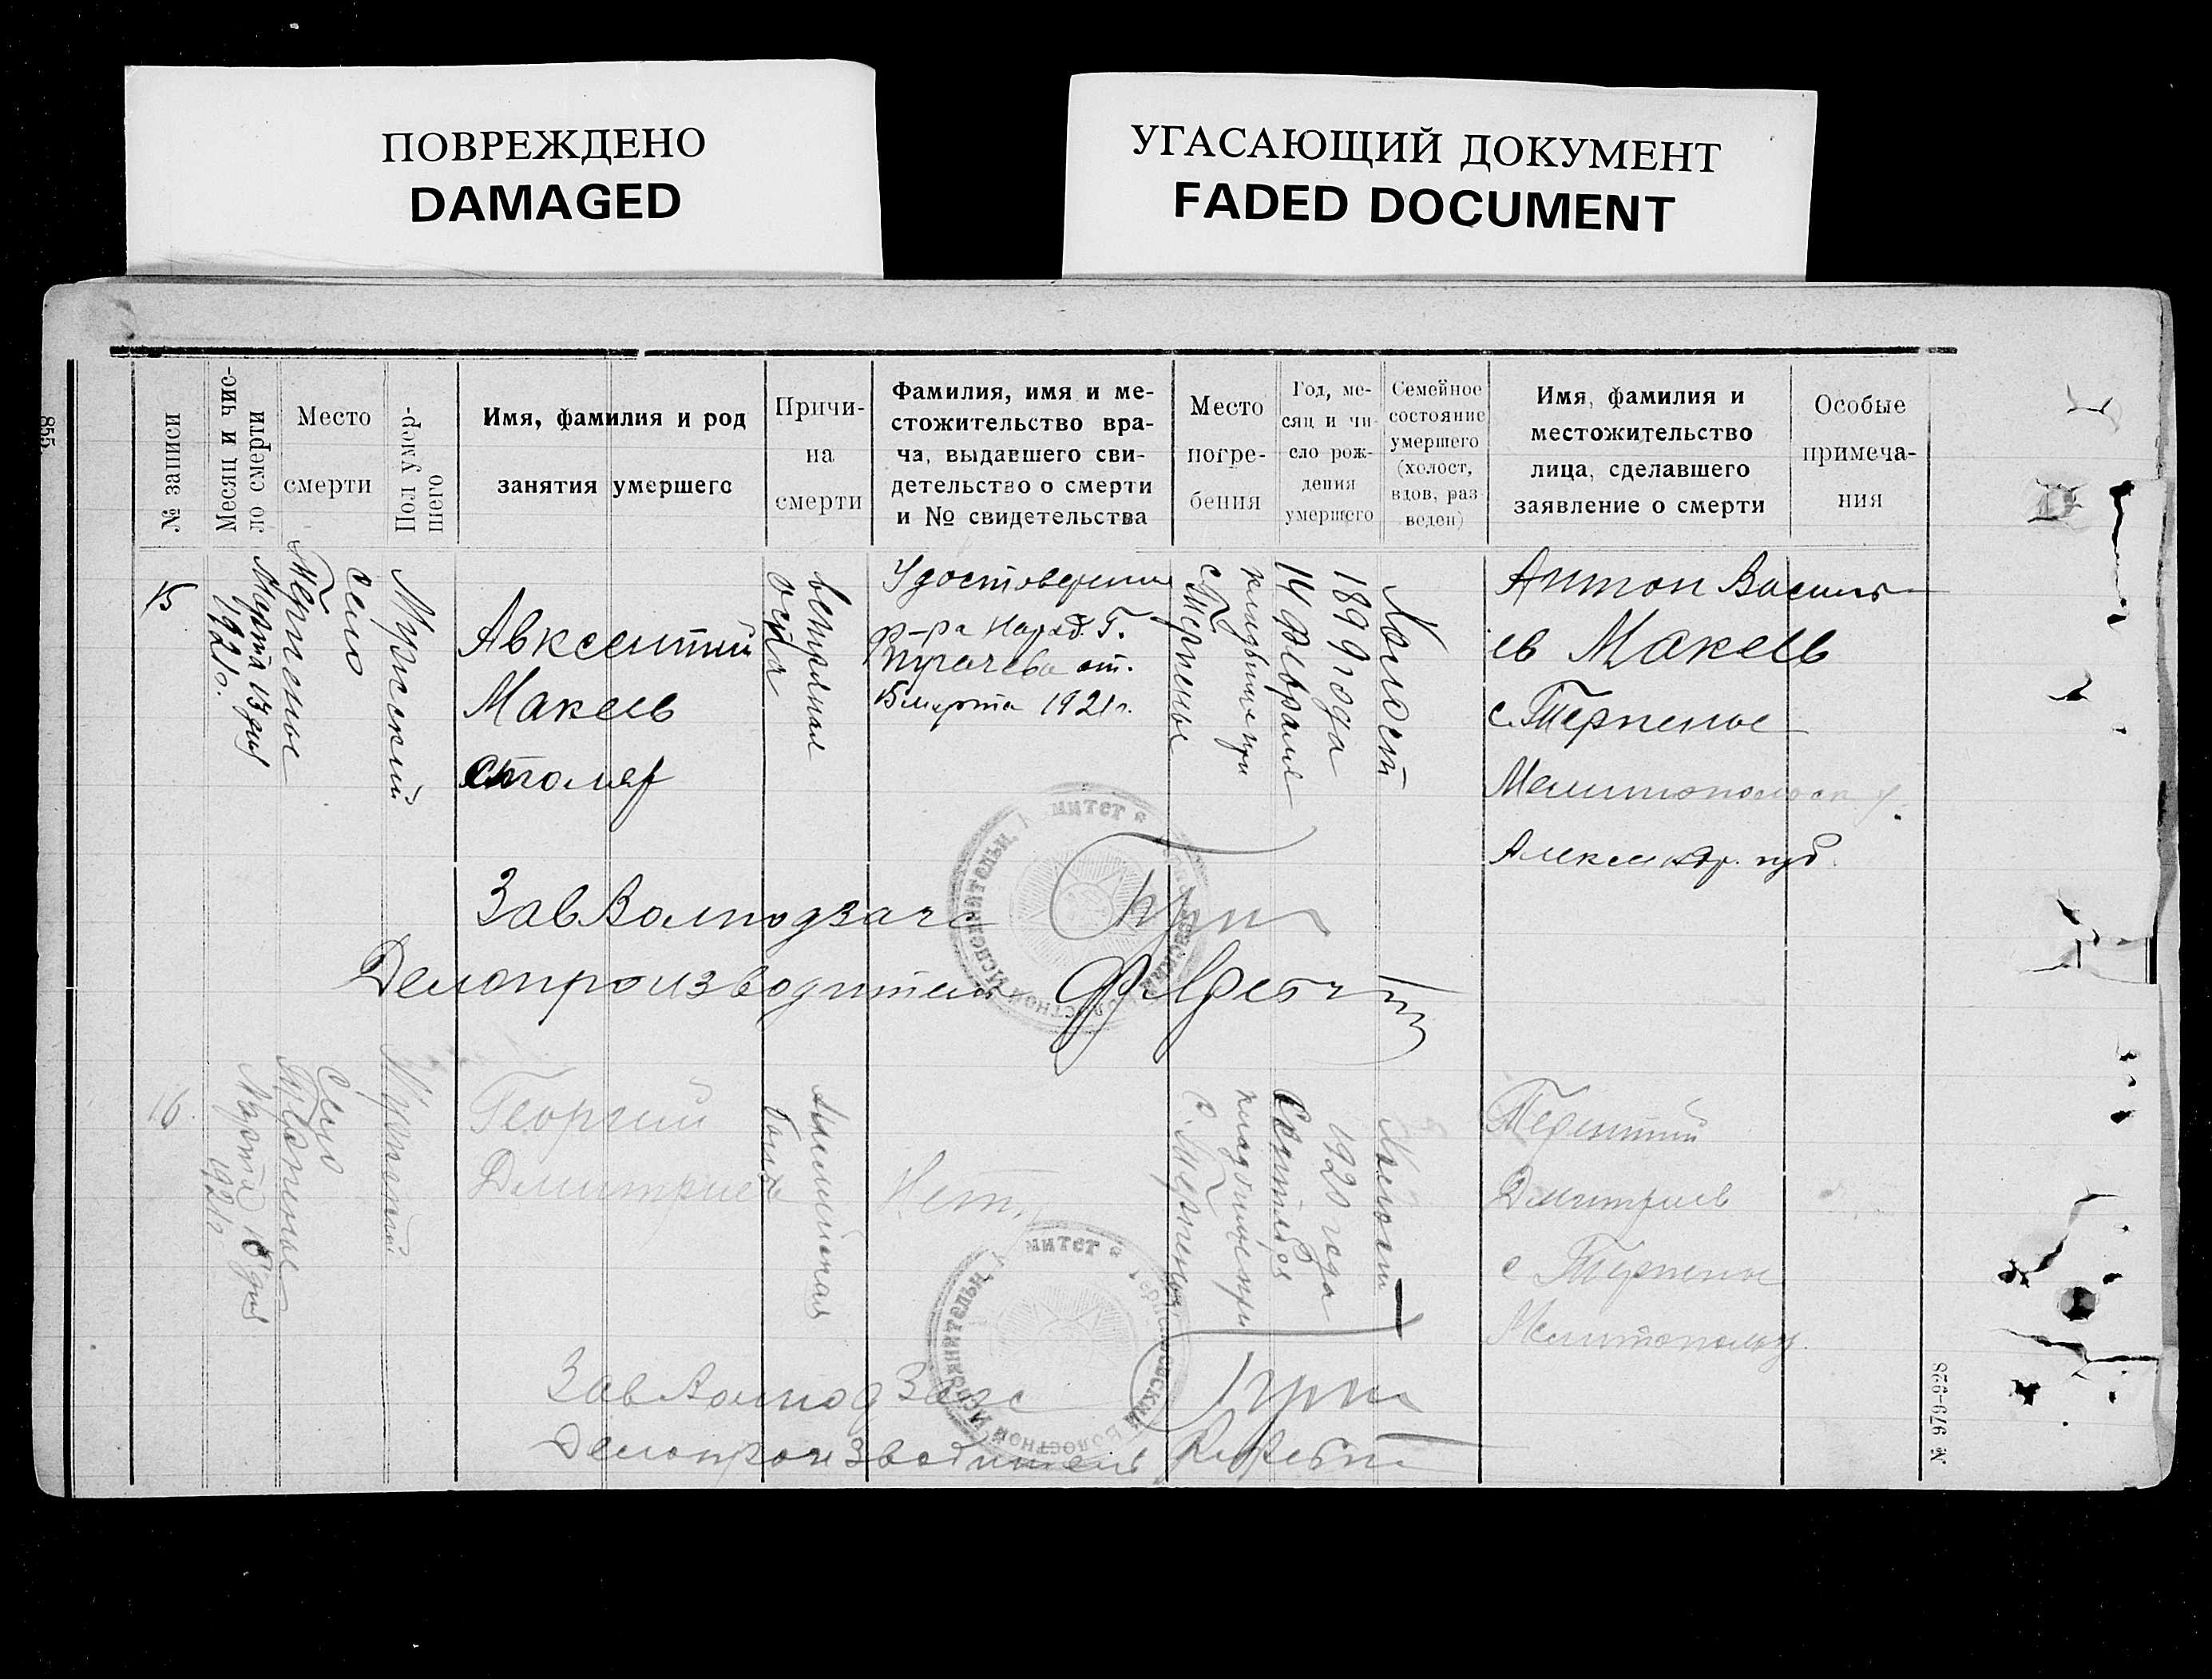 ПОВРЕЖДЕНО
DAMAGED
УГАСАЮЩИЙ ДОКУМЕНТ
FADED DOCUMENT
855
№ записи
Месяц и чис-
ло смерти
Место
смерти
Пол умер-
шего
Имя, фамилия и род
занятия умершего
Причи-
на
смерти
Фамилия, имя и ме-
стожительство вра-
ча, выдавшего сви-
детельство о смерти
и № свидетельства
Место
погре-
бения
Год, ме-
сяц и чи-
сло рож-
дения
умершего
Семейное
состояние
умершего
(холост,
вдов, раз-
веден)
Имя, фамилия и
местожительство
лица, сделавшего
заявление о смерти
Особые
примеча-
ния
15
Марта 13 дня
1921 г.
Село
Терпение
Мужеский
Авксентий
Макеев
столяр
ветряная
оспа
Удостоверение
от
Марта 1921 г.
кладбище при
с. Терпение
1899 года
14 Февраля
Холост
Антон Василь-
ев Макеев
с. Терпение
Мелитопольск у.
Александр. губ.
ЗавВолподзагс
Делопроизводитель
16.
Марта 18 дня
1921 г.
Село
Терпение
Мужеский
Георгий
Дмитриев
Нет.
кладбище при
с. Терпение
1920 года
Сентября
Холост
Терентий
Дмитриев
с Терпение
Мелитополь у.
ЗавВолподЗагс
Делопроизводитель
Волостной Исполнительн. Комитет
N 979-928